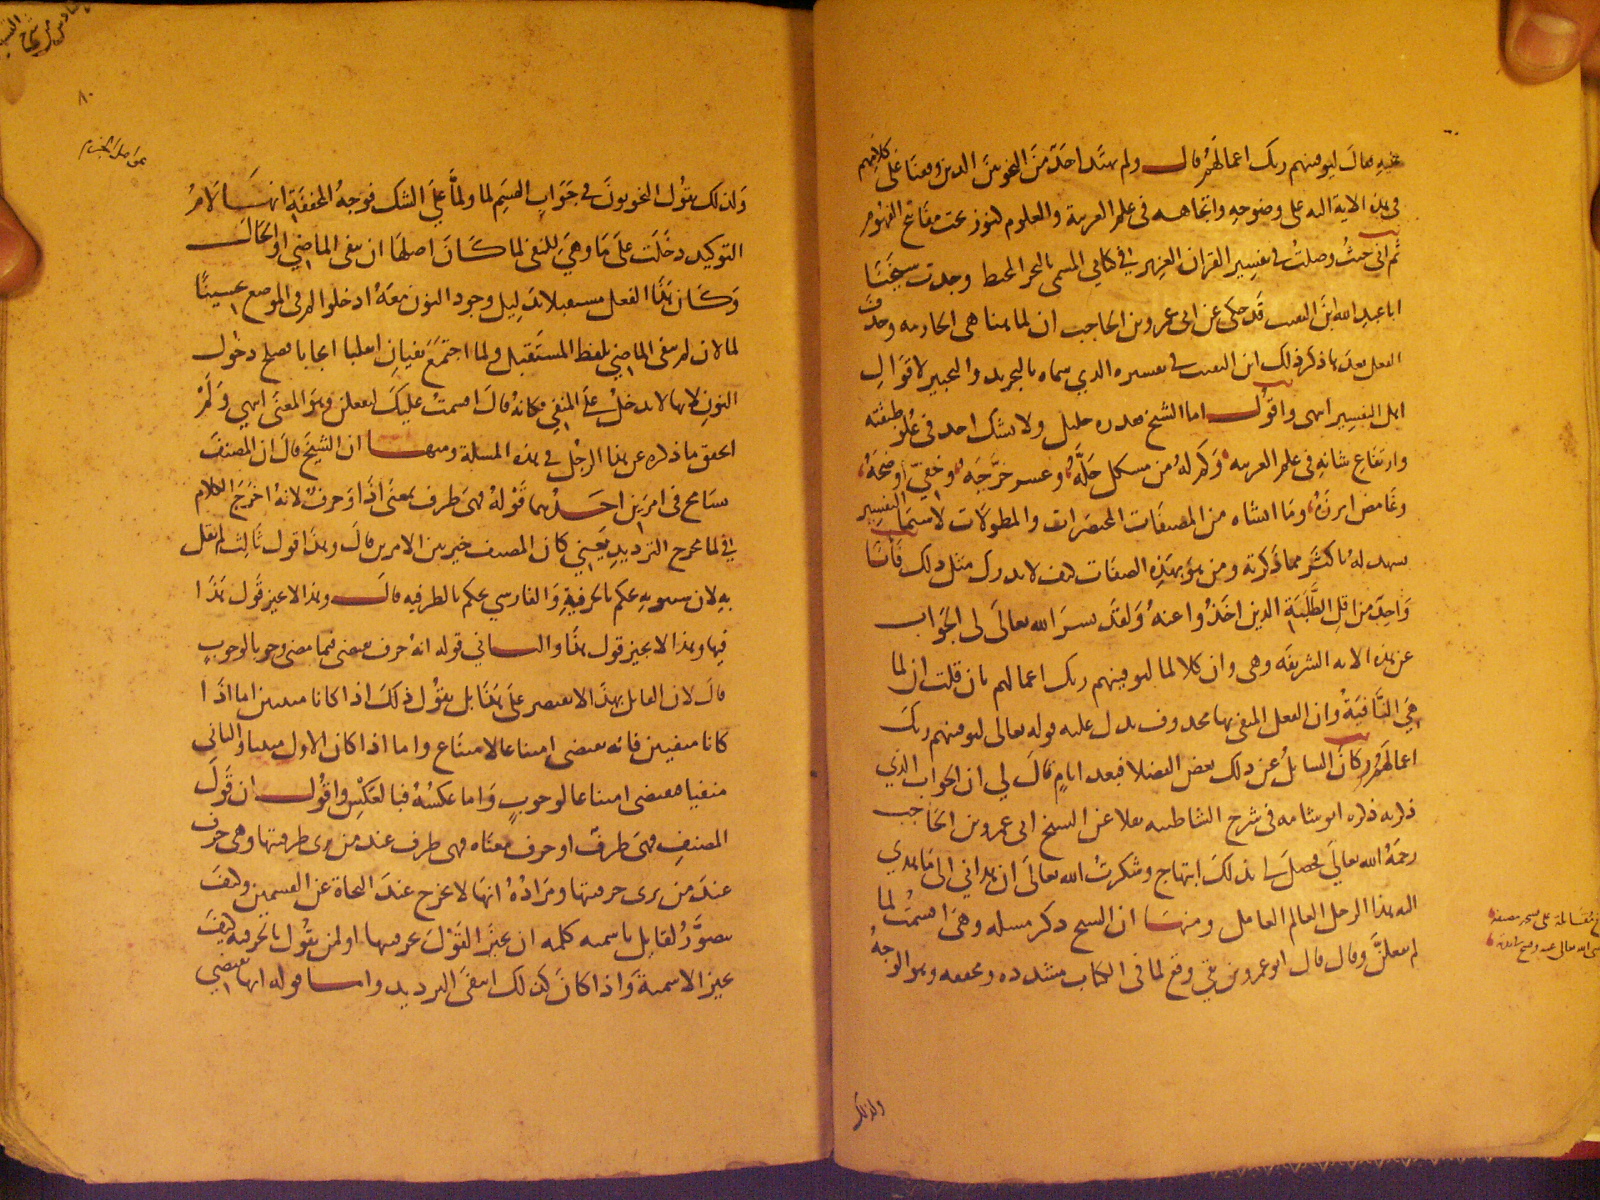 عليه فقال ليوفينهم ربك اعمالهم قال ولم يهتد احد من النحويين الذين وقفنا على كلامهم
في هذه الاية اليه على وضوحه واتجاهه في علم العربية والعلوم كنوز تحت مفاتيح الفهوم
ثم اني حيث وصلت في تفسير القران العزيز في كتابي المسمى بالبحر المحيط وجدت شيخنا
ابا عبد الله بن النقيب قد حكى عن ابي عمرو بن الحاجب ان لما هنا هي الجازمه وحذف
الفعل بعدها ذكر ذلك ابن النقيب في تفسيره الذي سماه بالتحرير والتحبير لاقوال
اهل التفسير انتهى واقول اما الشيخ فقدره جليل ولا يشك احد في علو طبقته
وارتفاع شانه في علم العربيه وكم له من مشكل حله وعسر خرجه وخفي اوضحه
وغامض ابرزه وما انشاه من المصنفات المختصرات والمطولات لاسيما التفسير
يشهد له باكثر مما ذكرته ومن هو بهذه الصفات كيف لا يدرك مثل ذلك فانا
واحد من اقل الطلبة الذين اخذوا عنه ولقد يسر الله تعالى لى الجواب
عن هذه الايه الشريفه وهى وان كلا لما ليوفينهم ربك اعمالهم بان قلت ان لما
هي النافية وان الفعل المنفي بها محذوف يدل عليه قوله تعالى ليوفينهم ربك
اعمالهم وكان السايل عن ذلك بعض الفضلا فبعد ايام قال لي ان الجواب الذي
ذكرته ذكره ابو شامه في شرح الشاطبيه نقلا عن الشيخ ابي عمرو بن الحاجب
رحمه الله تعالى فحصل لي بذلك ابتهاج وشكرت الله تعالى ان هداني الى ما هدي
اليه هذا الرجل العالم العامل ومنها ان الشيخ ذكر مسله وهي اقسمت لما
لم تفعلن وقال قال ابو عمرو بن تقي وقع لما في الكتاب مشدده ومخففه وهو الوجه
ولذلك
ولذلك يقول النحويون في جواب القسم لما ولما على الشك فوجه المخففة انها لام
التوكيد دخلت على ما وهي للنفي لما كان اصلها ان ينفى الماضي او الحال
وكان هذا الفعل مستقبلا بدليل وجود النون معه ادخلوا لم في الموضع
لما لان لم ينفى الماضي بلفظ المستقبل ولما اجتمع نفيان انقلبا ايجابا فصلح دخول
النون لانها لا تدخل على المنفي فكانه قال اقسمت عليك لتفعلن وهو المعنى انتهى ولم
احقق ما ذكره عن هذا الرجل في هذه المسلة ومنها ان الشيخ قال ان المصنف
سامح في امرين احدهما قوله فهى ظرف بمعنى اذا او حرف لانه اخرج الكلام
في لما مخرج الترديد يعني كان المصنف خير بين الامرين قال وهذا قول ثالث لم نقل
به لان سيبويه يحكم بالحرفية والفارسي يحكم بالظرفيه قال وهذا لا يجيز قول هذا
فيها وهذا لا يجيز قول هذا والثاني قوله انه حرف يقتضي فيما مضى وجوبا لوجوب
قال لان القايل بهذا لا يقتصر على هذا بل يقول ذلك اذا كانا مثبتين اما اذا
كانا منفيين فانه يقتضي امتناعا لامتناع واما اذا كان الاول مثبتا والثاني
منفيا فيقتضي امتناعا لوجوب واما عكسه فبالعكس واقول ان قول
المصنف فهي ظرف او حرف معناه فهي ظرف عند من يرى ظرفيتها وهي حرف
عند من يرى حرفيتها ومراده انها لا تخرج عند النحاة عن القسمين وكيف
يتصور لقايل باسميه كلمه ان يجيز القول بحرفيتها او لمن يقول بالحرفيه كيف
يجيز الاسمية واذا كان كذلك انتفى الترديد واما قوله انها تقتضي
٨٠